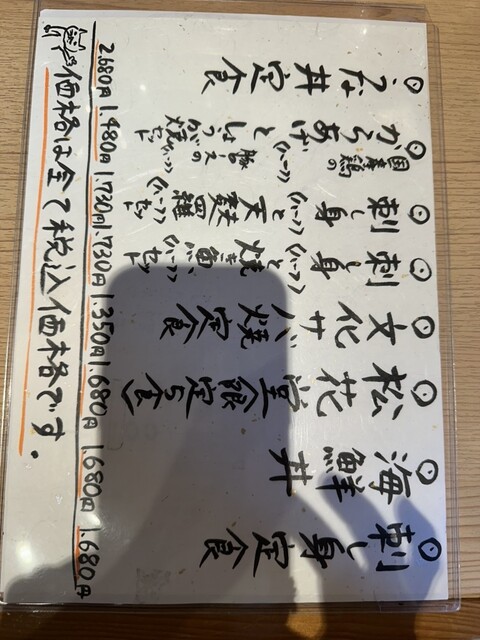 ◎刺し身定食 1.680円
◎海鮮丼 1.680円
◎松花堂〈限定5食〉 1.680円
◎文化サバ焼定食 1.350円
◎刺し身(ハーフ)と焼き魚(ハーフ)セット 1.730円
◎刺し身(ハーフ)と天麩羅(ハーフ)セット 1.730円
◎国産鶏のからあげ(ハーフ)と豚ロースのしょうが焼(ハーフ)セット 1.480円
◎うな丼定食 2.680円
価格は全て税込価格です。